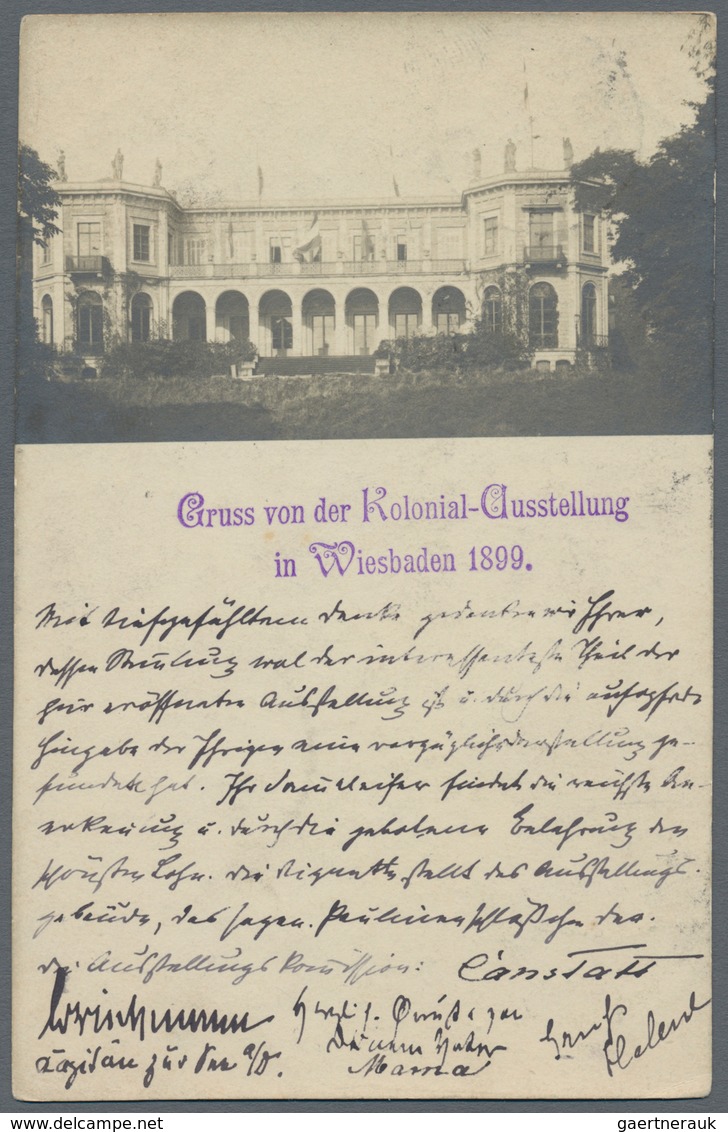 Gruss von der Kolonial-Ausstellung
in Wiesbaden 1899.
Mit tiefgefühltem Danke gedenken wir Ihrer,
dessen Sammlung wol der interessanteste Theil der
hier eröffneten Ausstellung ist u. durch die aufopfernde
Hingabe der Ihrigen eine vorzügliche Darstellung ge-
funden hat. Ihr Sammeleifer findet die reichste An-
erkennung u. durch die gebotene Belehrung den
schönsten Lohn. Die Vignette stellt das Ausstellungs-
gebäude, das sogen. Paulinenschlößchen dar.
die Ausstellungs Kommission: Canstatt
Herzl. Grüße von
Kapitän zur See a/D. Deinem Vater Gruß
Mama Helene
gaertnerauk